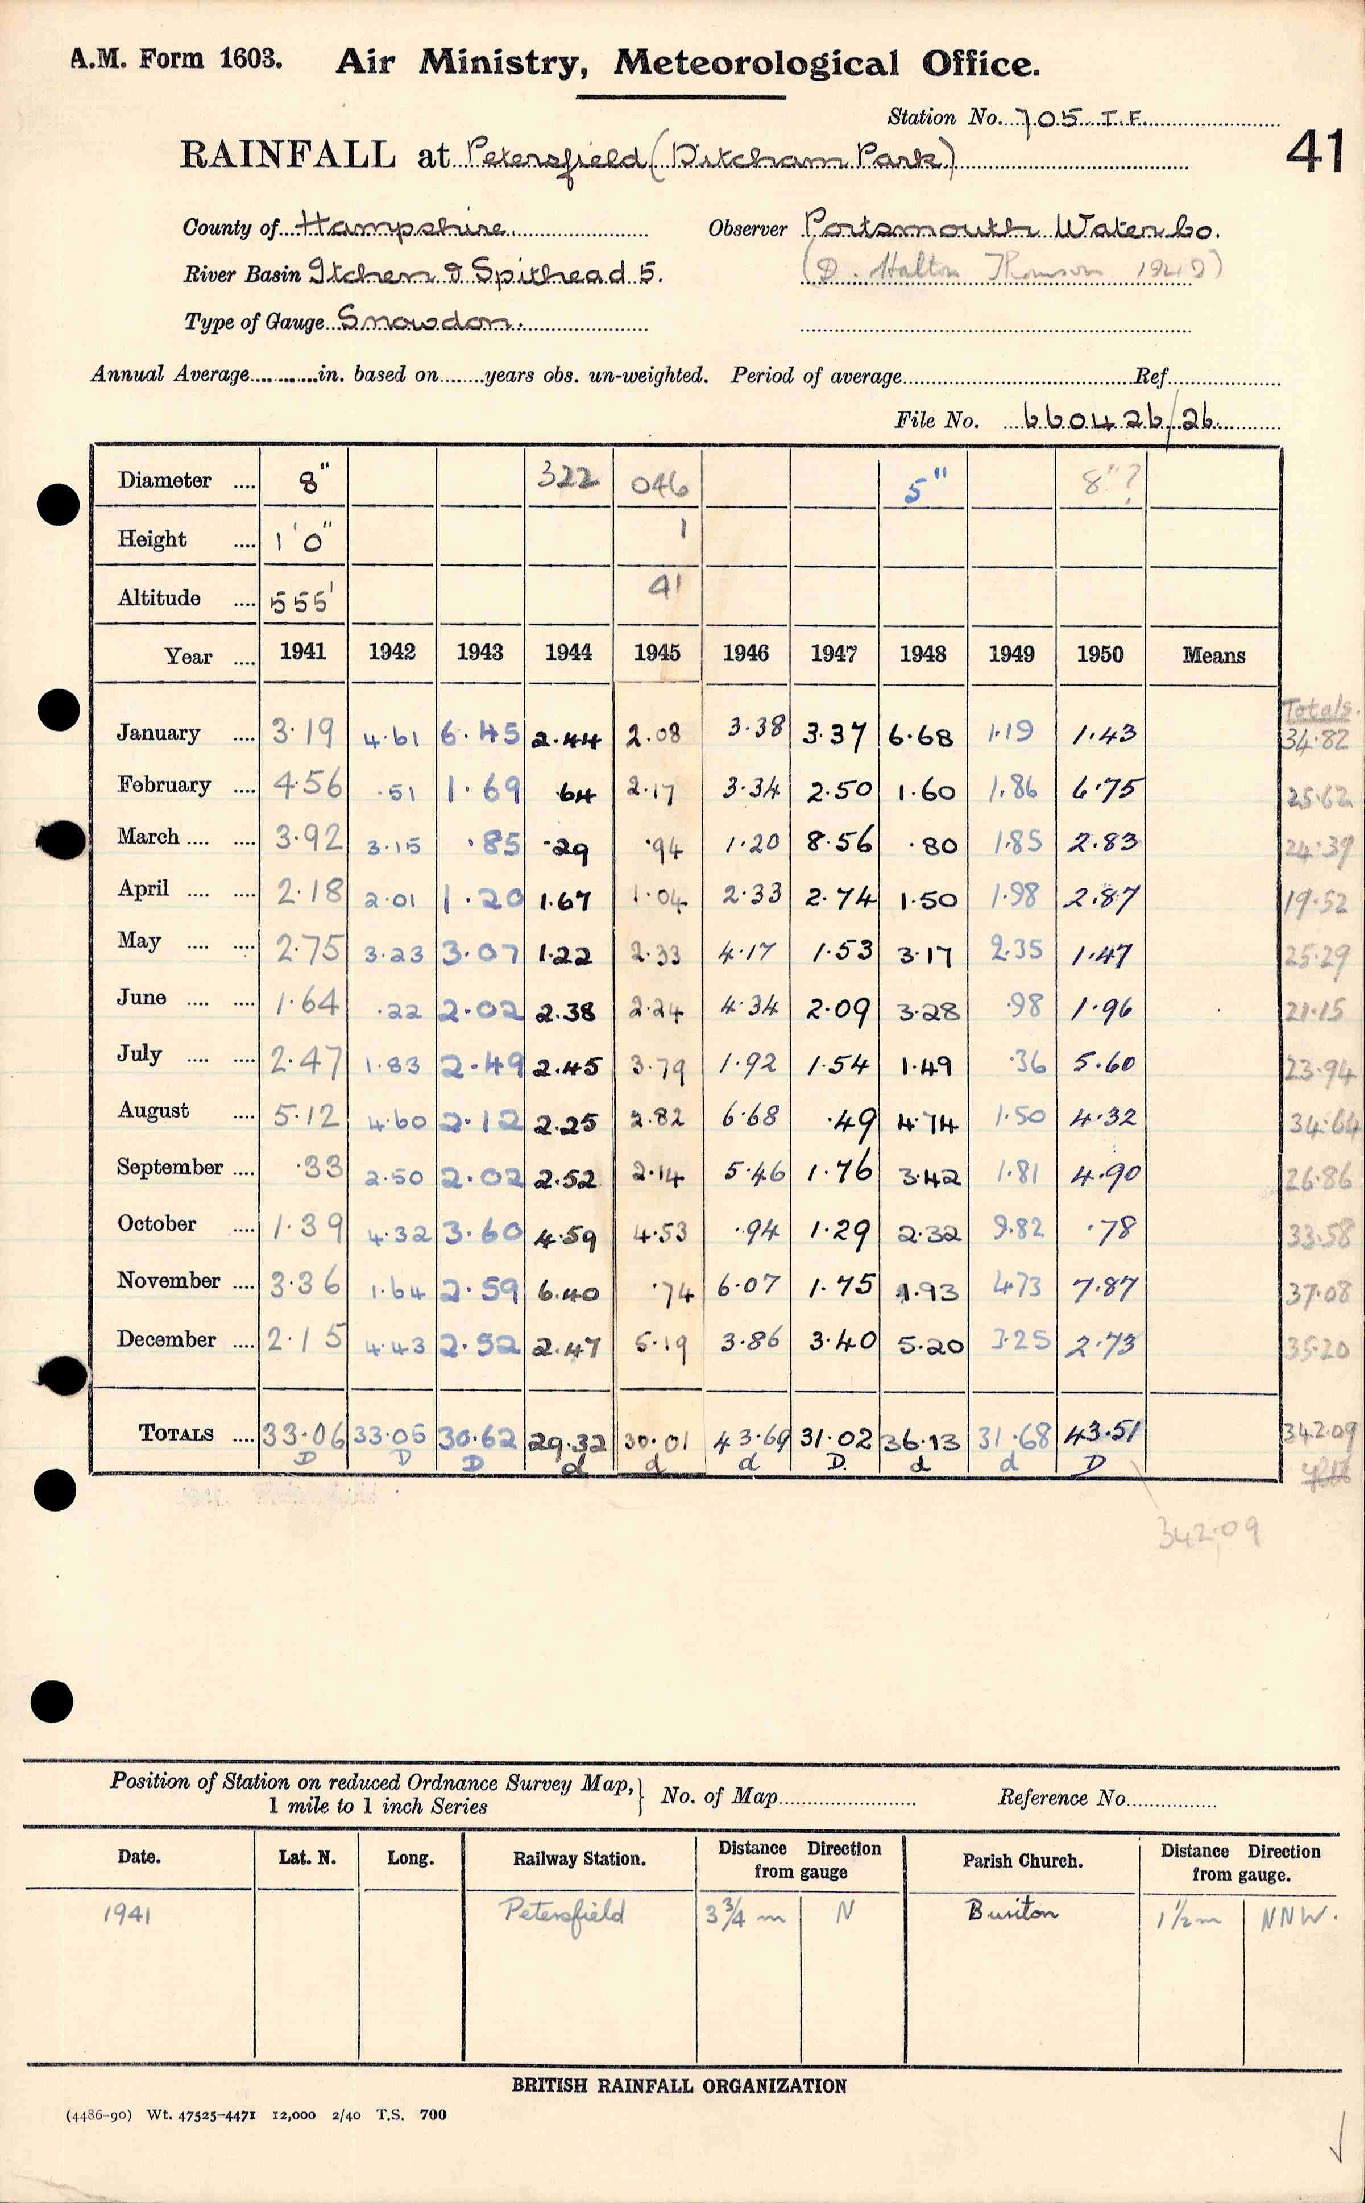 A.M. Form 1603. Air Ministry, Meteorological Office.
Station No. 705 I.F.
RAINFALL at Petersfield (Ditcham Park) 41
County of Hampshire Observer Portsmouth Water Co.
River Basin Itchen & Spithead 5. (D. Halton Thomson 1949)
Type of Gauge Snowdon.
Annual Average............in. based on........years obs. un-weighted. Period of average.......... Ref..........
File No. 660426/26
Diameter .... 8" 322 046 5" 8"?
Height .... 1'0" 1
Altitude .... 555' 41
Year .... 1941 1942 1943 1944 1945 1946 1947 1948 1949 1950 Means
Totals.
January .... 3.19 4.61 6.45 2.44 2.08 3.38 3.37 6.68 1.19 1.43 34.82
February .... 4.56 .51 1.69 .64 2.17 3.34 2.50 1.60 1.86 6.75 25.62
March .... .... 3.92 3.15 .85 .29 .94 1.20 8.56 .80 1.85 2.83 24.39
April .... .... 2.18 2.01 1.20 1.67 1.04 2.33 2.74 1.50 1.98 2.87 19.52
May .... .... 2.75 3.23 3.07 1.22 2.33 4.17 1.53 3.17 2.35 1.47 25.29
June .... .... 1.64 .22 2.02 2.38 2.24 4.34 2.09 3.28 .98 1.96 21.15
July .... .... 2.47 1.83 2.49 2.45 3.79 1.92 1.54 1.49 .36 5.60 23.94
August .... 5.12 4.60 2.12 2.25 2.82 6.68 .49 4.74 1.50 4.32 34.64
September .... .33 2.50 2.02 2.52 2.14 5.46 1.76 3.42 1.81 4.90 26.86
October .... 1.39 4.32 3.60 4.59 4.53 .94 1.29 2.32 9.82 .78 33.58
November .... 3.36 1.64 2.59 6.40 .74 6.07 1.75 1.93 4.73 7.87 37.08
December .... 2.15 4.43 2.52 2.47 5.19 3.86 3.40 5.20 3.25 2.73 35.20
TOTALS .... 33.06 33.05 30.62 29.32 30.01 43.69 31.02 36.13 31.68 43.51 342.09
D D D d d d D. d d D
342.09
Position of Station on reduced Ordnance Survey Map, } No. of Map.......... Reference No..........
1 mile to 1 inch Series
Date. Lat. N. Long. Railway Station. Distance Direction from gauge Parish Church. Distance Direction from gauge.
1941 Petersfield 3 3/4 m N Buriton 1 1/2 m NNW.
BRITISH RAINFALL ORGANIZATION
(4486-90) Wt. 47525-4471 12,000 2/40 T.S. 700